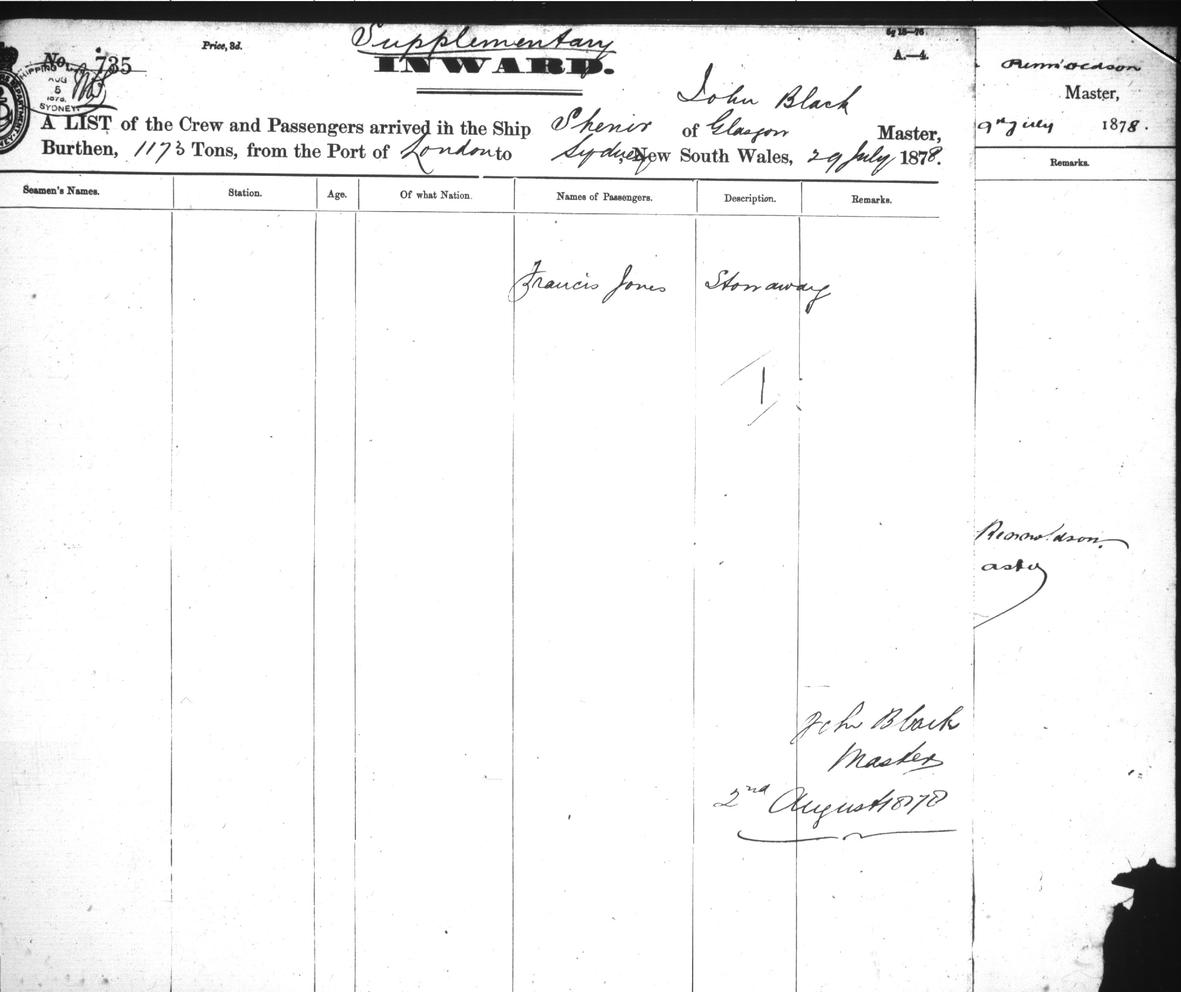 Supplementary
No. 735
Price, 3d.
INWARD.
A.—4.
SHIPPING
AUG
5
1878.
SYDNEY
John Black
A LIST of the Crew and Passengers arrived in the Ship of Glasgow Master,
Burthen, 1173 Tons, from the Port of London to Sydney, New South Wales, 29 July 1878.
Seamen's Names. Station. Age. Of what Nation. Names of Passengers. Description. Remarks.
Francis Jones Stowaway
1
John Black
Master
2nd August 1878
Master,
9th July 1878.
Remarks.